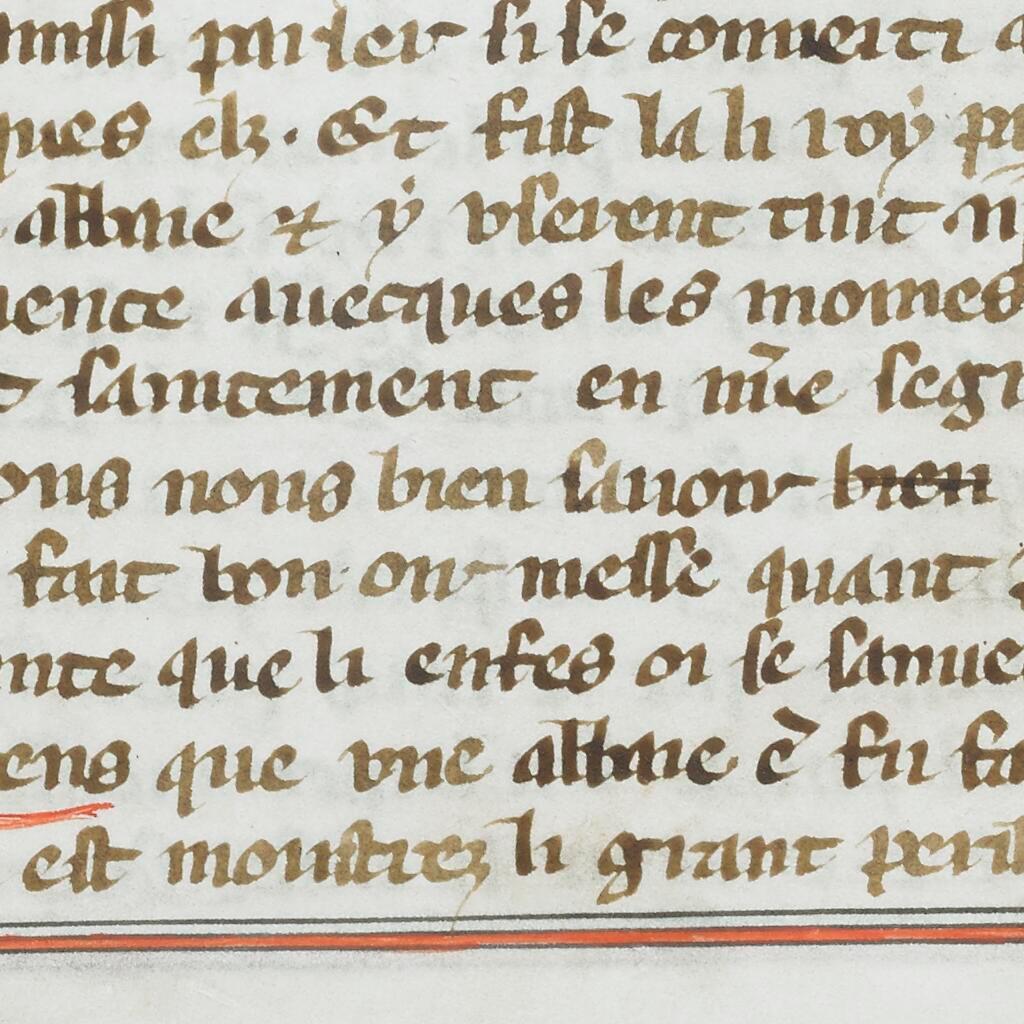 parler si se conuerti
ques elz. Et fist la li roy
abbaie ⁊ y vserent tuit
uence auecques les moines
saintement en mr̃e segn
ons nous bien sauoir bien
fait bon oir messe quant
nte que li enfes oi se sauue
ens que vne abbaie ē fu fa
est moustrez li grant peril